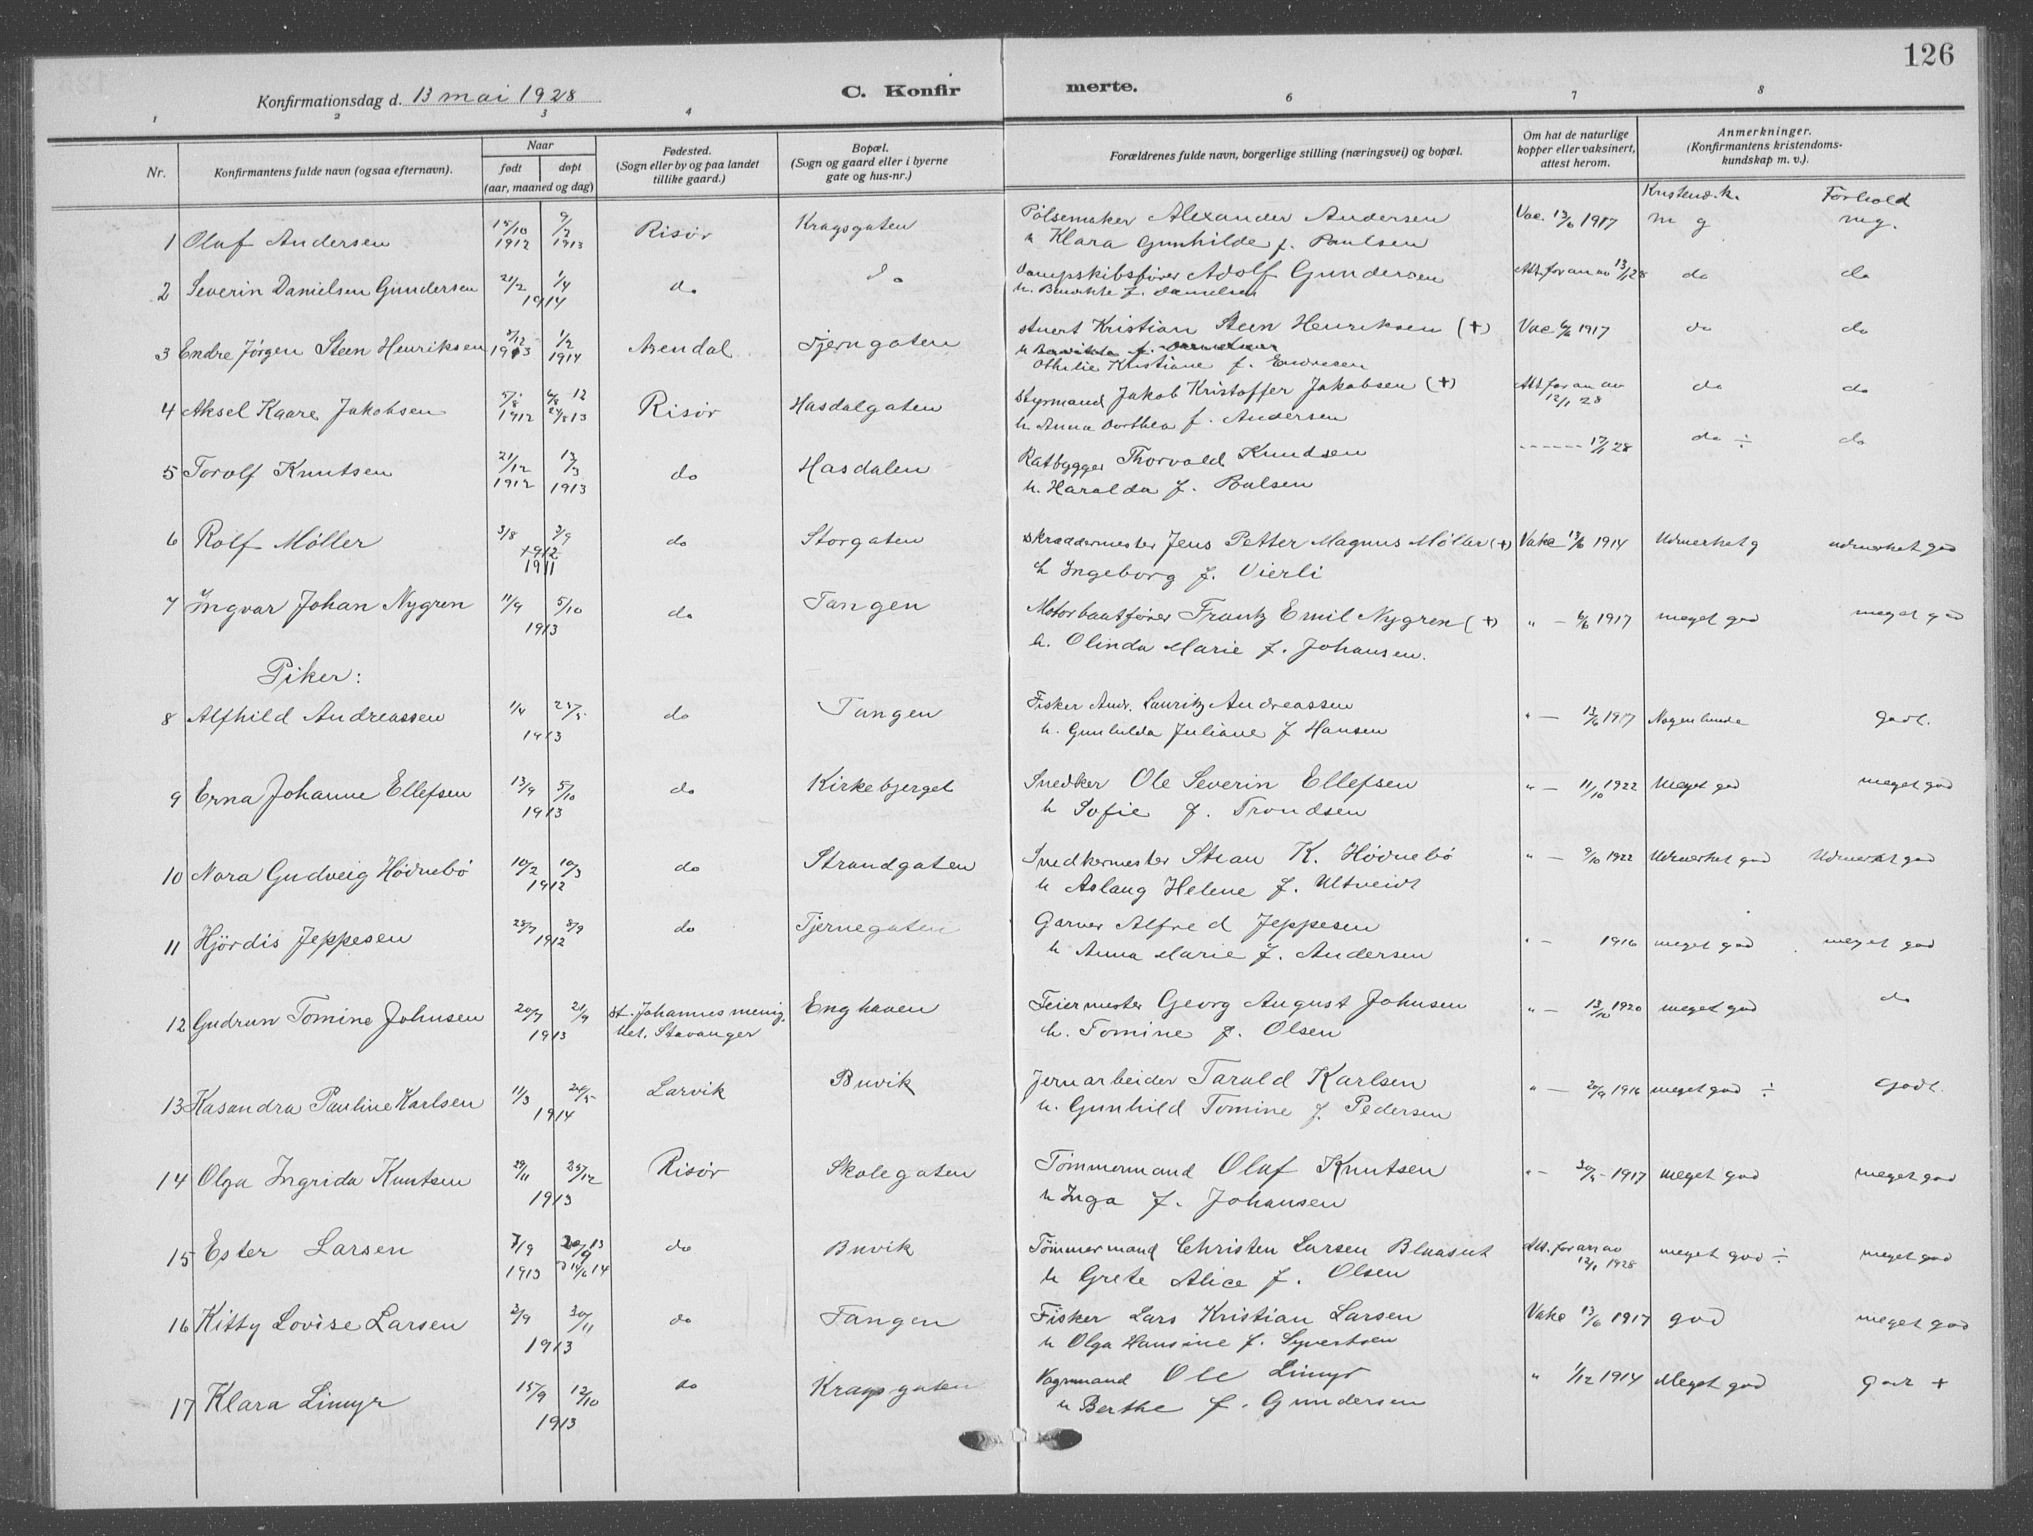 126
Konfirmationsdag d. 13 mai 1928 C. Konfirmerte.
1 2 3 4 6 7 8
Nr. Konfirmantens fulde navn (ogsaa efternavn). Naar født døpt (aar, maaned og dag) Fødested. (Sogn eller by og paa landet tillike gaard.) Bopæl. (Sogn og gaard eller i byerne gate og hus-nr.) Forældrenes fulde navn, borgerlige stilling (næringsvei) og bopæl. Om hat de naturlige kopper eller vaksinert, attest herom. Anmerkninger. (Konfirmantens kristendoms-kundskap m. v.)
Kristend.k. Forhold
1 Olaf Andersen 15/10 1912 9/2 1913 Risör Kragsgaten Pölsemaker Alexander Andersen Vac. 13/6 1917 m g mg.
h Klara Gunhilde f. Paulsen
2 Severin Danielsen Gundersen 21/2 1/4 1914 do do Dampskibsfører Adolf Gundersen Att. for an av 13/1 28 do do
h. f. Danielsen
3 Endre Jørgen Steen Henriksen 1913 1/2 1914 Arendal Tjerngaten stuert Kristian Steen Henriksen (+) Vac 6/6 1917 do do
Othilie Kristiane f. Endresen
4 Aksel Kaare Jakobsen 5/8 1912 6/8 12 24/8 13 Risör Hasdalgaten Styrmand Jakob Kristoffer Jakobsen (+) Att for an av 12/1 28 do do
h Anna Dorthea f. Andersen
5 Torolf Knutsen 21/12 1912 13/3 1913 do Hasdalen Ratbygger Thorvald Knudsen 17/1 28 do ÷ do
h. Haralda f. Poulsen
6 Rolf Möller 3/8 3/9 1912 1911 do Storgaten Skraddermester Jens Petter Magnus Möller (+) Vake 13/6 1914 Udmerket g udmerket god
h Ingeborg f. Vierli
7 Ingvar Johan Nygren 11/9 5/10 1913 do Tangen Motorbaatfører Frantz Emil Nygren (+) " — 6/6 1917 meget god meget god
h. Olinda Marie f. Johansen.
Piker:
8 Alfhild Andreassen 1/4 25/5 1913 do Tangen Fisker Andr. Lauritz Andreassen " — 13/6 1917 Nogenlunde godt.
h. Gunhilda Juliane f Hansen
9 Erna Johanne Ellefsen 13/9 5/10 1913 do Kirkebjerget Snedker Ole Severin Ellefsen " — 11/10 1922 Meget god meget god
h Sofie f. Trondsen
10 Nora Gudveig Hödnebö 10/2 10/3 1912 do Strandgaten Snedkermester Stian K. Hödnebö " — 9/10 1922 Udmerket god Udmerket god
h Aslaug Helene f. Ultveidt
11 Hjördis Jeppesen 28/7 8/9 1912 do Tjernegaten Garver Alfred Jeppesen " — 1916 meget god meget god
h Anna Marie f. Andersen
12 Gudrun Tomine Johnsen 20/7 21/9 1913 St. Johannes menig. Stavanger Enghaven Feiermester Georg August Johnsen " — 13/10 1920 meget god do
h. Tomine f. Olsen
13 Kasandra Pauline Karlsen 11/3 24/5 1914 Larvik Buvik Jernarbeider Tarald Karlsen " — 20/9 1916 meget god ÷ Godt.
h. Gunhild Tomine f Pedersen
14 Olga Ingrida Knutsen 29/11 25/12 1913 Risör Skolegaten Tömmermand Olaf Knutsen " — 1917 meget god meget god
h Inga f. Johansen
15 Ester Larsen 7/9 1913 20/9 13 14/6 14 do Buvik Tömmermand Christen Larsen Blaasut Att. for an av 12/1 1928 meget god ÷ meget god
h Grete Alice f. Olsen
16 Kitty Lovise Larsen 2/9 30/11 1913 do Tangen Fisker Lars Kristian Larsen Vake 13/6 1917 god meget god
h Olga Hansine f. Syvertsen
17 Klara Limyr 15/9 12/10 1913 do Kragsgaten Vognmand Ole Limyr " 1/12 1914 Meget god god +
h Berthe f. Gundersen